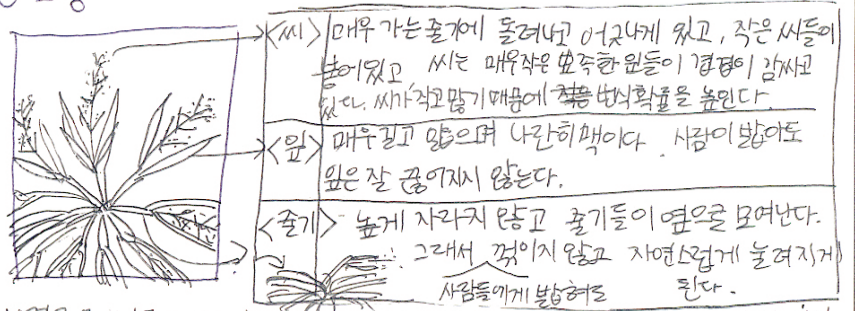 <씨> 매우 가는 줄기에 돌려나고 어긋나게 있고, 작은 씨들이
붙어있고 씨는 매우작은 뾰족한 잎들이 겹겹이 감싸고
있다. 씨가 작고 많기 때문에 번식확률을 높인다.
<잎> 매우 길고 얇으며 나란히맥이다. 사람이 밟아도
잎은 잘 끊어지지 않는다.
<줄기> 높게 자라지 않고 줄기들이 옆으로 모여난다.
그래서 꺾이지 않고 자연스럽게 눌려지게
사람들에게 밟혀도 된다.